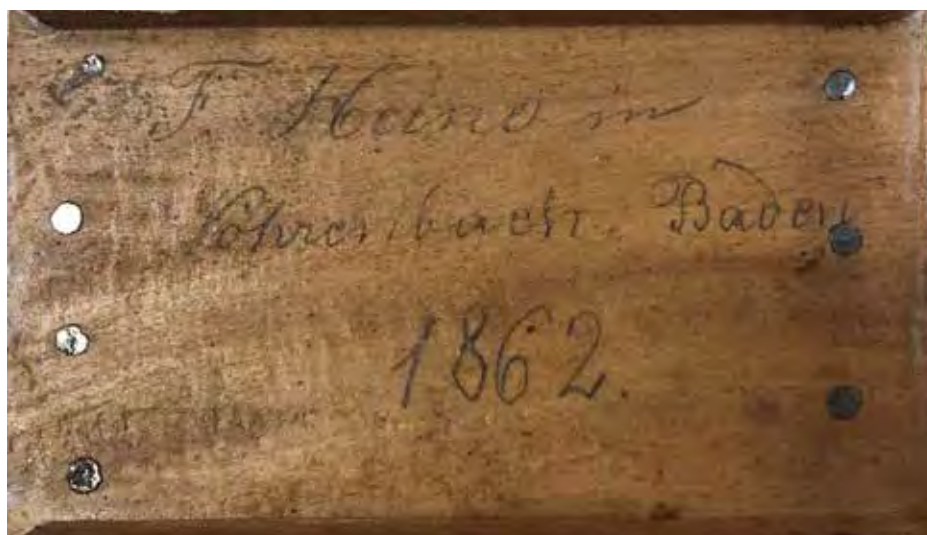 F Heine in
Vöhrenbach. Baden
1862.